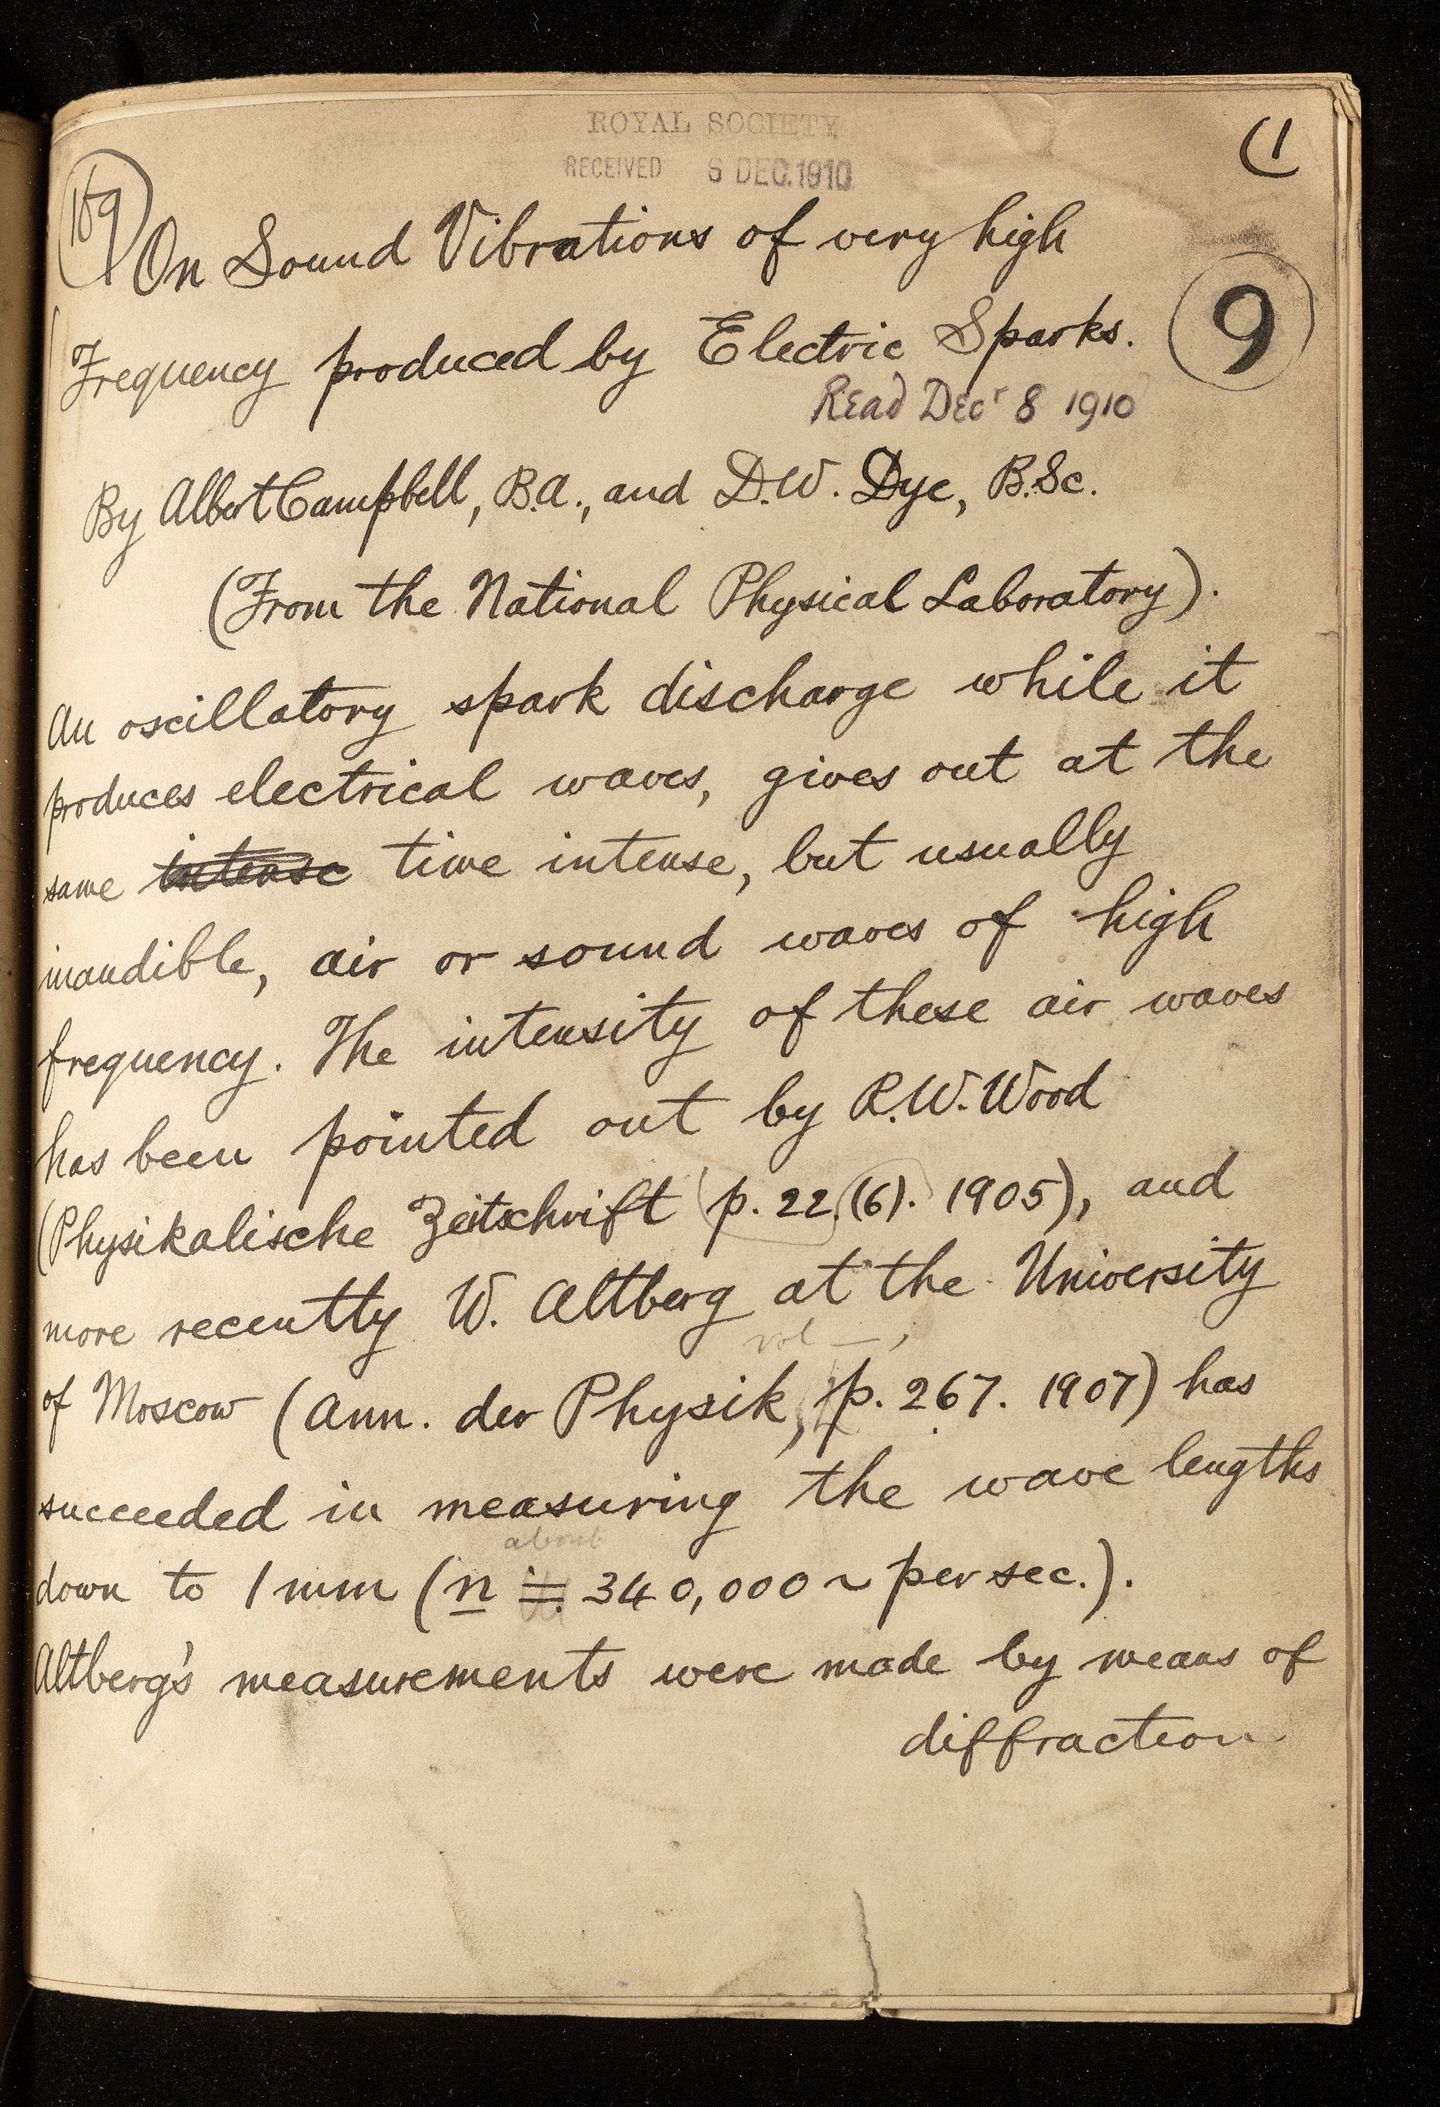 ROYAL SOCIETY
RECEIVED 6 DEC.1910
(1
169
On Sound Vibrations of very high
Frequency produced by Electric Sparks.
9
Read Decr 8 1910
By Albert Campbell, B.A., and D.W. Dye, B.Sc.
(From the National Physical Laboratory).
An oscillatory spark discharge while it
produces electrical waves, gives out at the
same intense time intense, but usually
inaudible, air or sound waves of high
frequency. The intensity of these air waves
has been pointed out by R.W. Wood
(Physikalische Zeitschrift p. 22.(6). 1905), and
more recently W. Altberg at the University
vol —,
of Moscow (Ann. der Physik, p. 267. 1907) has
succeeded in measuring the wave lengths
about
down to 1 mm (n ≐ 340,000 ~ per sec.).
Altberg's measurements were made by means of
diffraction